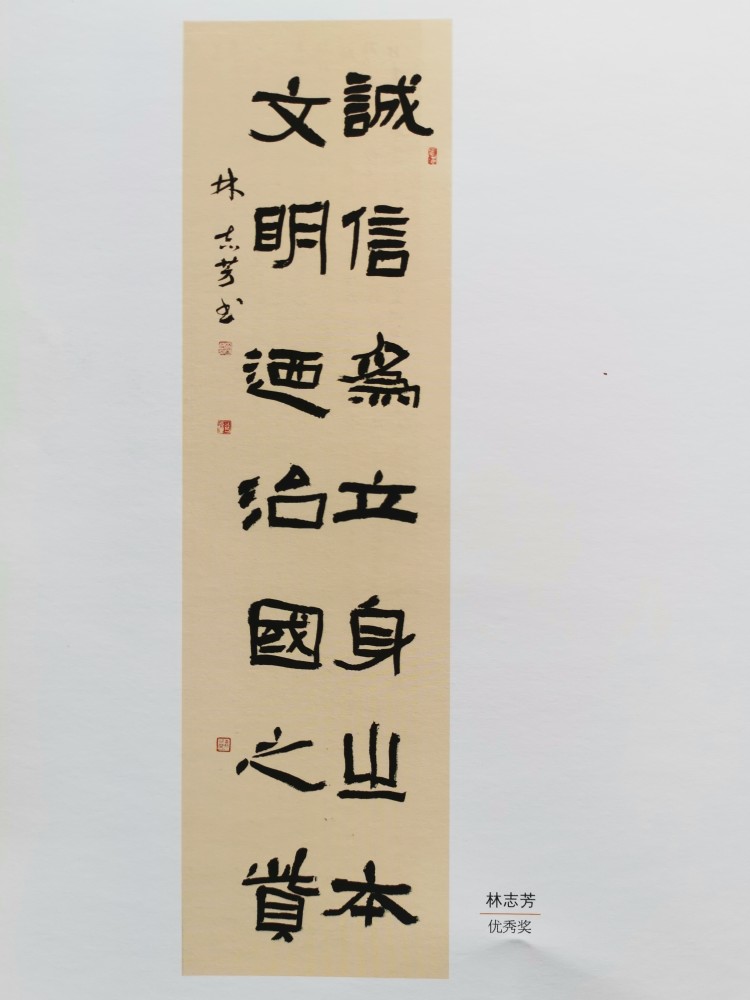 誠信為立身之本
文明迺治國之貲
林志芳书
林志芳
优秀奖